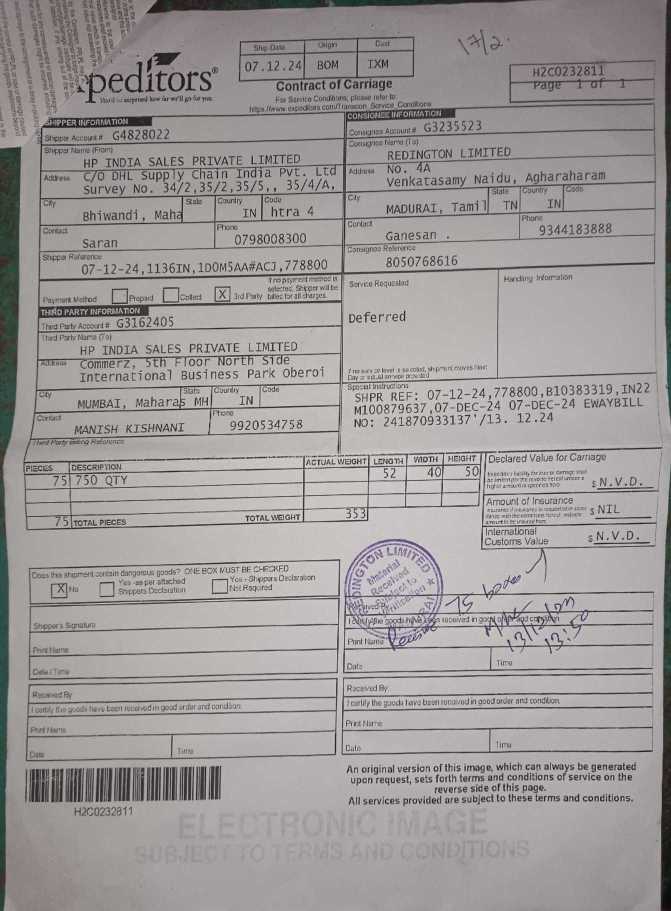 Expeditors®
You'd be surprised how far we'll go for you.
Ship Date Origin Dest
07.12.24 BOM IXM
17/2.
H2C0232811
Page 1 of 1
Contract of Carriage
For Service Conditions, please refer to:
https://www.expeditors.com/Transcon_Service_Conditions
SHIPPER INFORMATION
Shipper Account # G4828022
Shipper Name (From)
HP INDIA SALES PRIVATE LIMITED
Address C/O DHL Supply Chain India Pvt. Ltd
Survey No. 34/2,35/2,35/5,, 35/4/A,
City State Country Code
Bhiwandi, Maha IN htra 4
Contact Phone
Saran 0798008300
Shipper Reference
07-12-24,1136IN,1D0M5AA#ACJ,778800
Payment Method Prepaid Collect X 3rd Party
If no payment method is
selected, Shipper will be
billed for all charges.
THIRD PARTY INFORMATION
Third Party Account # G3162405
Third Party Name (To)
HP INDIA SALES PRIVATE LIMITED
Address Commerz, 5th Floor North Side
International Business Park Oberoi
City State Country Code
MUMBAI, Maharas MH IN
Contact Phone
MANISH KISHNANI 9920534758
Third Party Billing Reference
CONSIGNEE INFORMATION
Consignee Account # G3235523
Consignee Name (To)
REDINGTON LIMITED
Address No. 4A
Venkatasamy Naidu, Agharaharam
City State Country Code
MADURAI, Tamil TN IN
Contact Phone
Ganesan . 9344183888
Consignee Reference
8050768616
Service Requested Handling Information
Deferred
If no service level is selected, shipment moves Next
Day or actual service provided
Special Instructions
SHPR REF: 07-12-24,778800,B10383319,IN22
M100879637,07-DEC-24 07-DEC-24 EWAYBILL
NO: 241870933137'/13. 12.24
PIECES DESCRIPTION ACTUAL WEIGHT LENGTH WIDTH HEIGHT
75 750 QTY 52 40 50
75 TOTAL PIECES TOTAL WEIGHT 353
Declared Value for Carriage
$ N.V.D.
Amount of Insurance
$ NIL
International
Customs Value $ N.V.D.
Does this shipment contain dangerous goods? ONE BOX MUST BE CHECKED
X No Yes -as per attached
Shippers Declaration
Yes - Shippers Declaration
Not Required
REDINGTON LIMITED
Material
Received
Subject to
Verification
MADURAI
75 boxes
Shipper's Signature
Print Name
Date / Time
I certify the goods have been received in good order and condition
Print Name Receive
13:50
Date Time
Received By
I certify the goods have been received in good order and condition.
Print Name
Date Time
Received By
I certify the goods have been received in good order and condition.
Print Name
Date Time
H2C0232811
An original version of this image, which can always be generated
upon request, sets forth terms and conditions of service on the
reverse side of this page.
All services provided are subject to these terms and conditions.
ELECTRONIC IMAGE
SUBJECT TO TERMS AND CONDITIONS